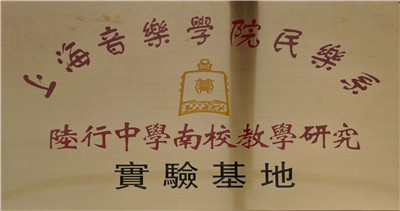 上海音樂學院民樂系
陸行中學南校教學研究
實驗基地